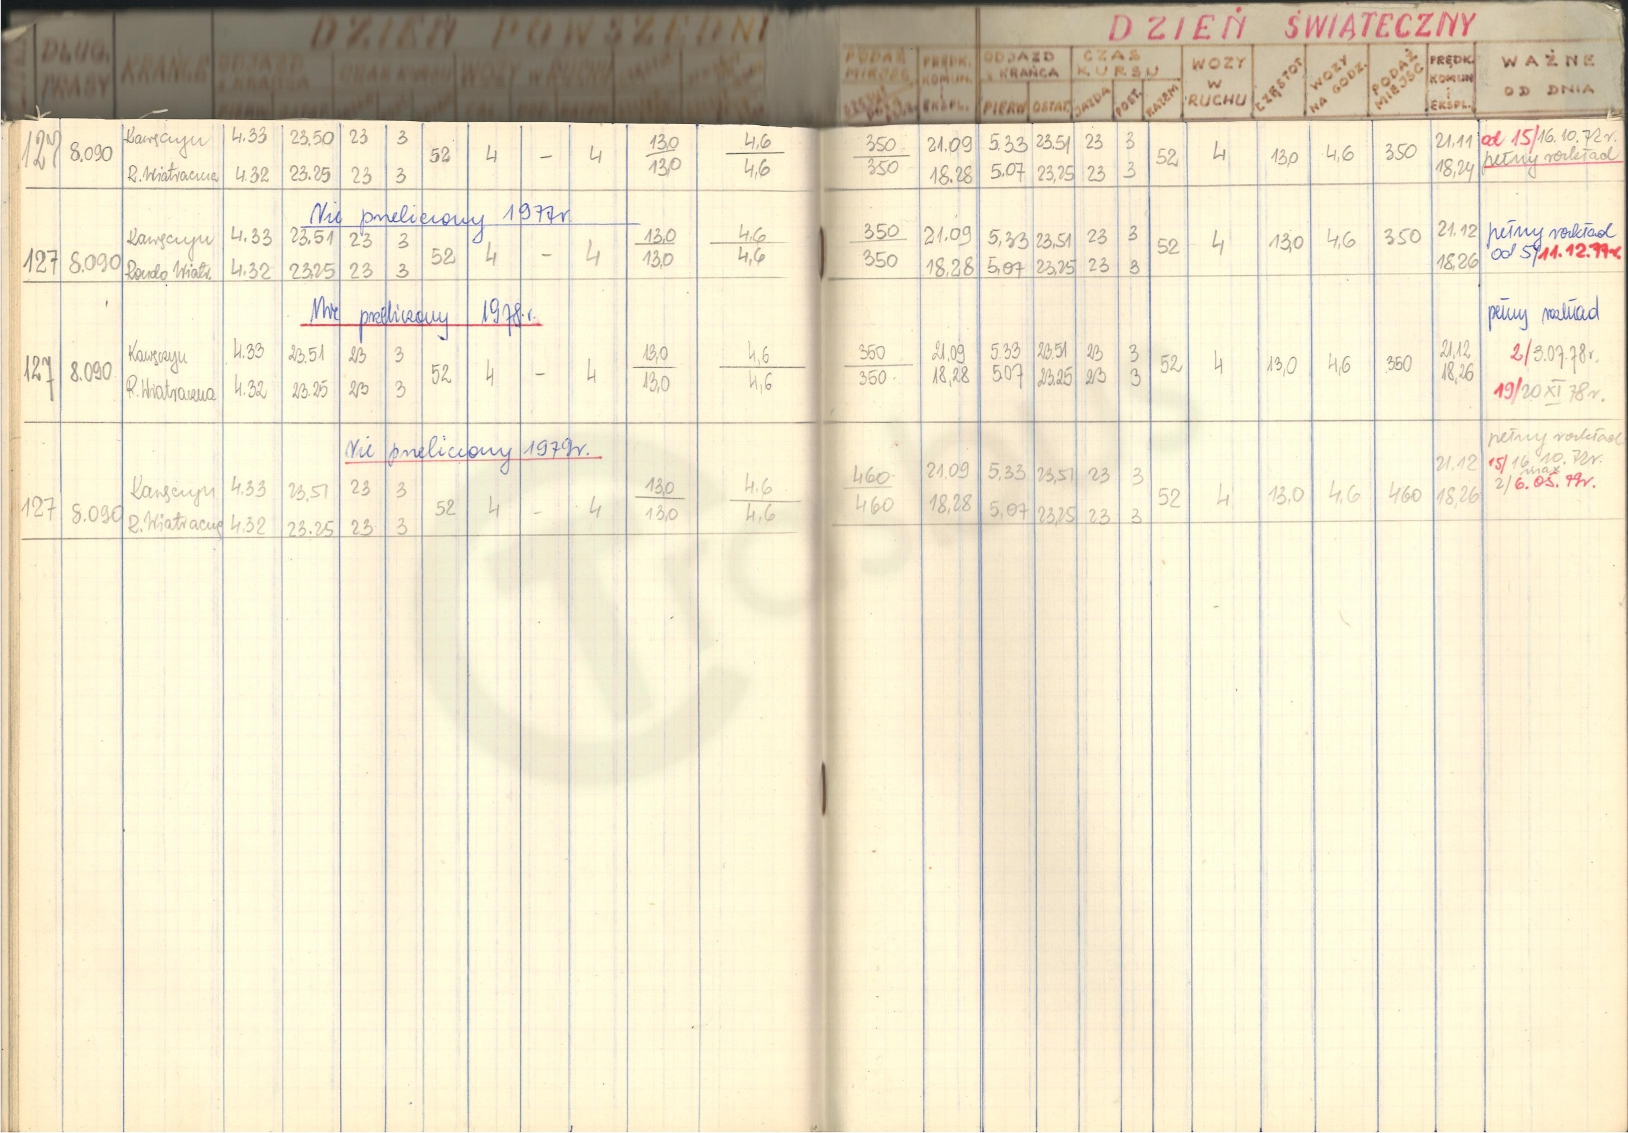 DZIEŃ POWSZEDNI
DZIEŃ ŚWIĄTECZNY
DŁUG. TRASY KRAŃCE ODJAZD Z KRAŃCA WOZY W RUCHU
PODAŻ MIEJSC PRĘDK. KOMUN. i EKSPL. ODJAZD z KRAŃCA CZAS KURSU WOZY W RUCHU CZĘSTOT. WOZY NA GODZ. PODAŻ MIEJSC PRĘDK. KOMUN i EKSPL. WAŻNE OD DNIA
PIERW OSTAT. JAZDA POST. RAZEM
127 8.090 Kawęczyn 4.33 23.50 23 3 52 4 – 4 13,0 4,6 350 21.09 5.33 23.51 23 3 52 4 13,0 4,6 350 21.11 od 15/16.10.72r.
R.Wiatraczna 4.32 23.25 23 3 13,0 4,6 350 18.28 5.07 23,25 23 3 18,24 pełny rozkład
Nie przeliczony 1977r.
127 8.090 Kawęczyn 4.33 23,51 23 3 52 4 – 4 13,0 4,6 350 21.09 5,33 23,51 23 3 52 4 13,0 4,6 350 21.12 pełny rozkład
Rondo Wiatr. 4.32 23.25 23 3 13,0 4,6 350 18,28 5,07 23,25 23 3 18,26 od 5/11.12.77r.
Nie przeliczony 1978.r. pełny rozkład
127 8.090 Kawęczyn 4.33 23.51 23 3 52 4 – 4 13,0 4,6 350 21,09 5.33 23.51 23 3 52 4 13,0 4,6 350 21,12 2/3.07.78r.
R.Wiatraczna 4.32 23.25 23 3 13,0 4,6 350 18,28 5.07 23.25 23 3 18,26 19/20 XI 78r.
Nie przeliczony 1979r. pełny rozkład
127 8.090 Kawęczyn 4.33 23,51 23 3 52 4 – 4 13,0 4.6 460 21.09 5,33 23,51 23 3 52 4 13,0 4,6 460 21.12 15/16.10.72r.
R.Wiatraczna 4.32 23.25 23 3 13,0 4,6 460 18,28 5,07 23,25 23 3 18,26 2/6.05.79r.